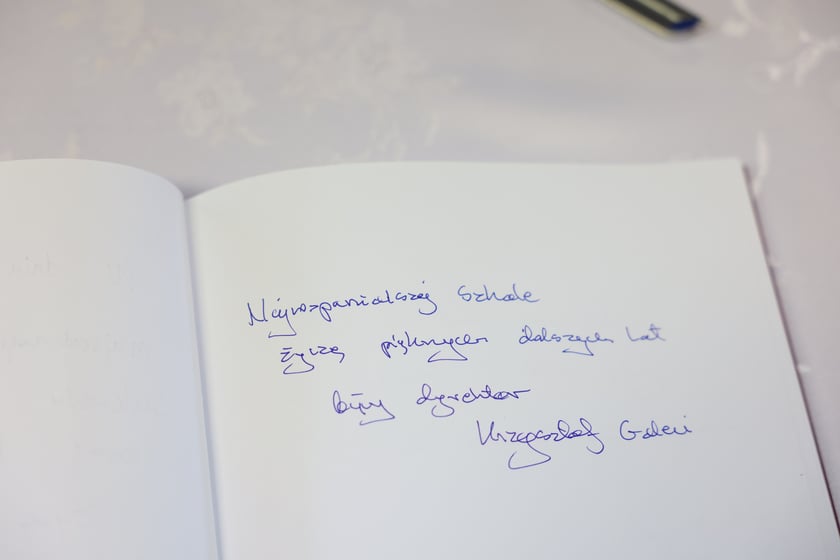 Najwspanialszej Szkole
życzę pięknych dalszych lat
były dyrektor
Krzysztof